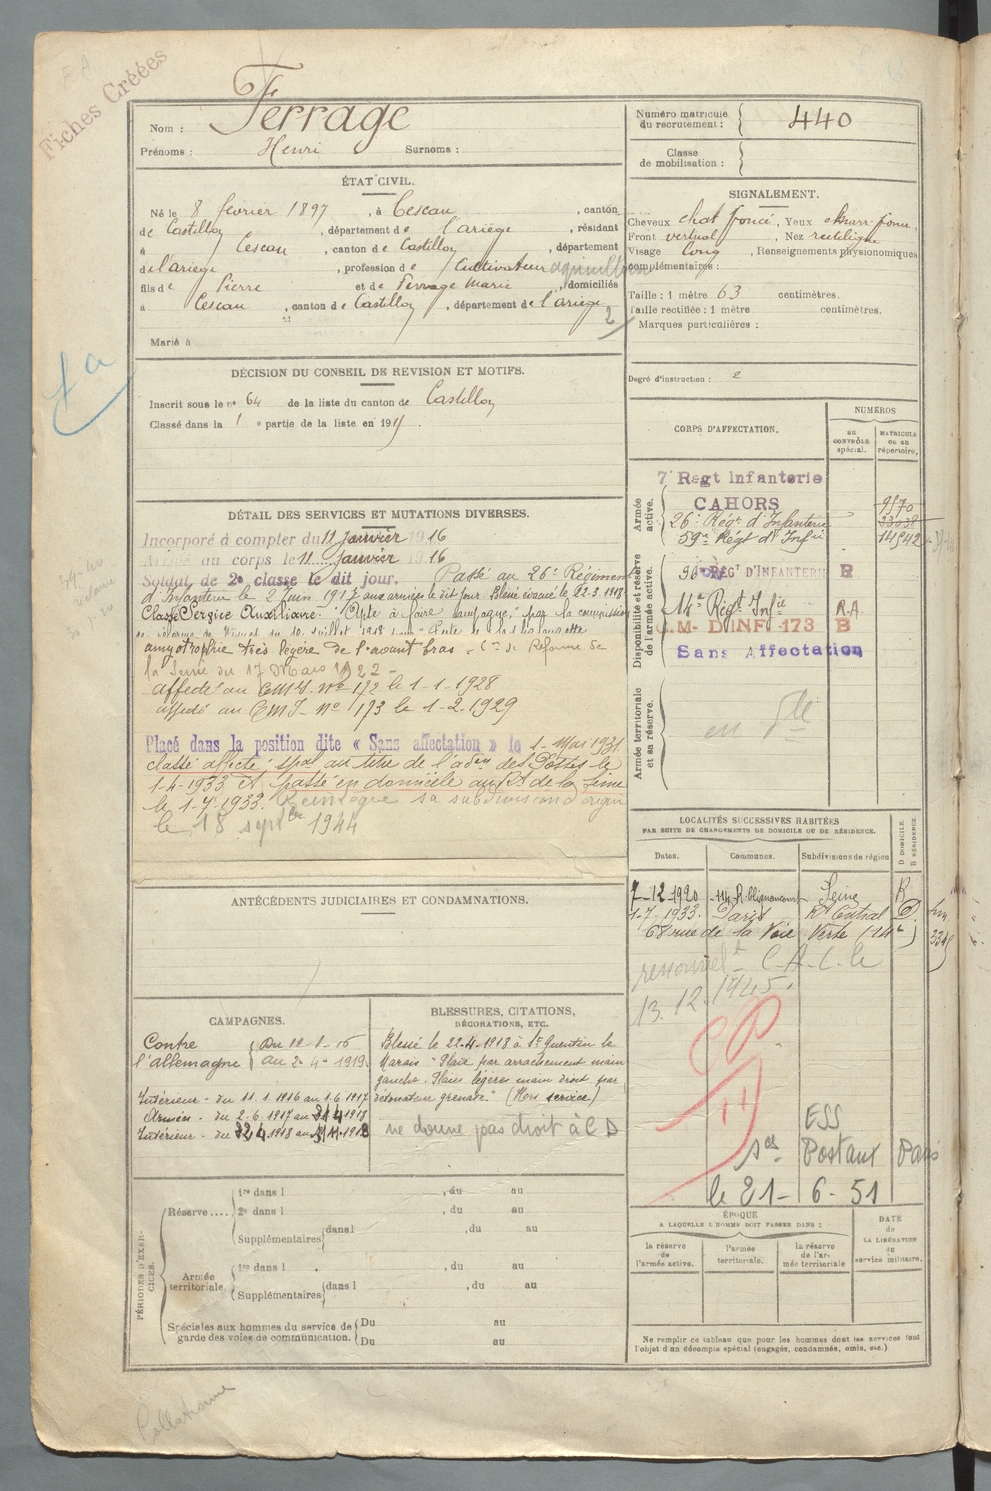 Fiches Créées
Nom : Ferrage
Prénoms : Henri Surnoms :
Numéro matricule du recrutement : 440
Classe de mobilisation :
ÉTAT CIVIL.
Né le 8 février 1897, à Cescau, canton
de Castillon, département de l'ariège, résidant
à Cescau, canton de Castillon, département
de l'ariège, profession de Cultivateur
fils de Pierre et de Ferrage Marie, domiciliés
à Cescau, canton de Castillon, département de l'ariège
2
Marié à
SIGNALEMENT.
Cheveux chat foncé, Yeux
Front vertical, Nez rectiligne
Visage long, Renseignements physionomiques
complémentaires :
Taille : 1 mètre 63 centimètres.
Taille rectifiée : 1 mètre centimètres.
Marques particulières :
Degré d'instruction : 2
DÉCISION DU CONSEIL DE REVISION ET MOTIFS.
Inscrit sous le n° 64 de la liste du canton de Castillon
Classé dans la 1e partie de la liste en 191
DÉTAIL DES SERVICES ET MUTATIONS DIVERSES.
Incorporé à compter du 11 janvier 1916
Arrivé au corps le 11 janvier 1916
Soldat de 2e classe le dit jour. Passé au 26e Régiment
d'Infanterie le 2 Juin 1917 aux armées le dit jour Blessé évacué le 22.3.1918
Classé Service Auxiliaire "Apte à faire campagne" par la commission
de réforme de du 10 juillet 1918
amyotrophie très légère de l'avant bras - Con de Réforme de
la Seine du 17 Mars 1922 -
affecté au CMI. no 172 le 1-1-1928
affecté au CMI. no 173 le 1-2-1929
Placé dans la position dite « Sans affectation » le 1- Mai 1931.
classé affecté spal au titre de l'adon des Postes le
1-4-1933 et passé en domicile au Rt de la Seine
le 1-7-1933. Réintègre sa subdivision d'origine
le 18 septbre 1944
CORPS D'AFFECTATION.
NUMÉROS
AU CONTRÔLE spécial.
MATRICULE OU AU répertoire.
Armée active.
7e Regt Infanterie
CAHORS
26e Régt d'Infanterie
59e Régt d'Infie
9570
14542
Disponibilité et réserve de l'armée active.
REGT D'INFANTERIE R
14e Régt Infie R.A
C.M. D'INF 173 B
Sans Affectation
Armée territoriale et sa réserve.
LOCALITÉS SUCCESSIVES HABITÉES
PAR SUITE DE CHANGEMENTS DE DOMICILE OU DE RÉSIDENCE.
Dates. Communes. Subdivisions de région
D DOMICILE. R RÉSIDENCE.
7-12-1920 114 R. Clignancourt Seine R
1-7-1933. Paris Rt Central D.
68 rue de la Voie Verte (14e)
C.A.C. le
13.12.1945.
ESS
Postaux Paris
le 21- 6-51
ANTÉCÉDENTS JUDICIAIRES ET CONDAMNATIONS.
CAMPAGNES.
Contre l'allemagne
du 11-1-16
au 2-4-1919.
Intérieur - du 11.1.1916 au 1.6.1917
Armées - du 2.6.1917 au 1918
Intérieur - du 1918 au 1918
BLESSURES, CITATIONS,
DÉCORATIONS, ETC.
Blessé le 22-4-1918 à St Quentin le
Marais "Plaie par arrachement main
gauche. Plaies légères main droit par
détonateur grenade." (Hors service)
ne donne pas droit à C D
PÉRIODES D'EXERCICES.
Réserve....
1re dans l , du au
2e dans l , du au
Supplémentaires dans l , du au
Armée territoriale.
1re dans l , du au
Supplémentaires dans l , du au
Spéciales aux hommes du service de garde des voies de communication.
Du au
Du au
ÉPOQUE
A LAQUELLE L'HOMME DOIT PASSER DANS :
la réserve de l'armée active.
l'armée territoriale.
la réserve de l'armée territoriale
DATE de LA LIBÉRATION du service militaire.
Ne remplir ce tableau que pour les hommes dont les services font
l'objet d'un décompte spécial (engagés, condamnés, omis, etc.)